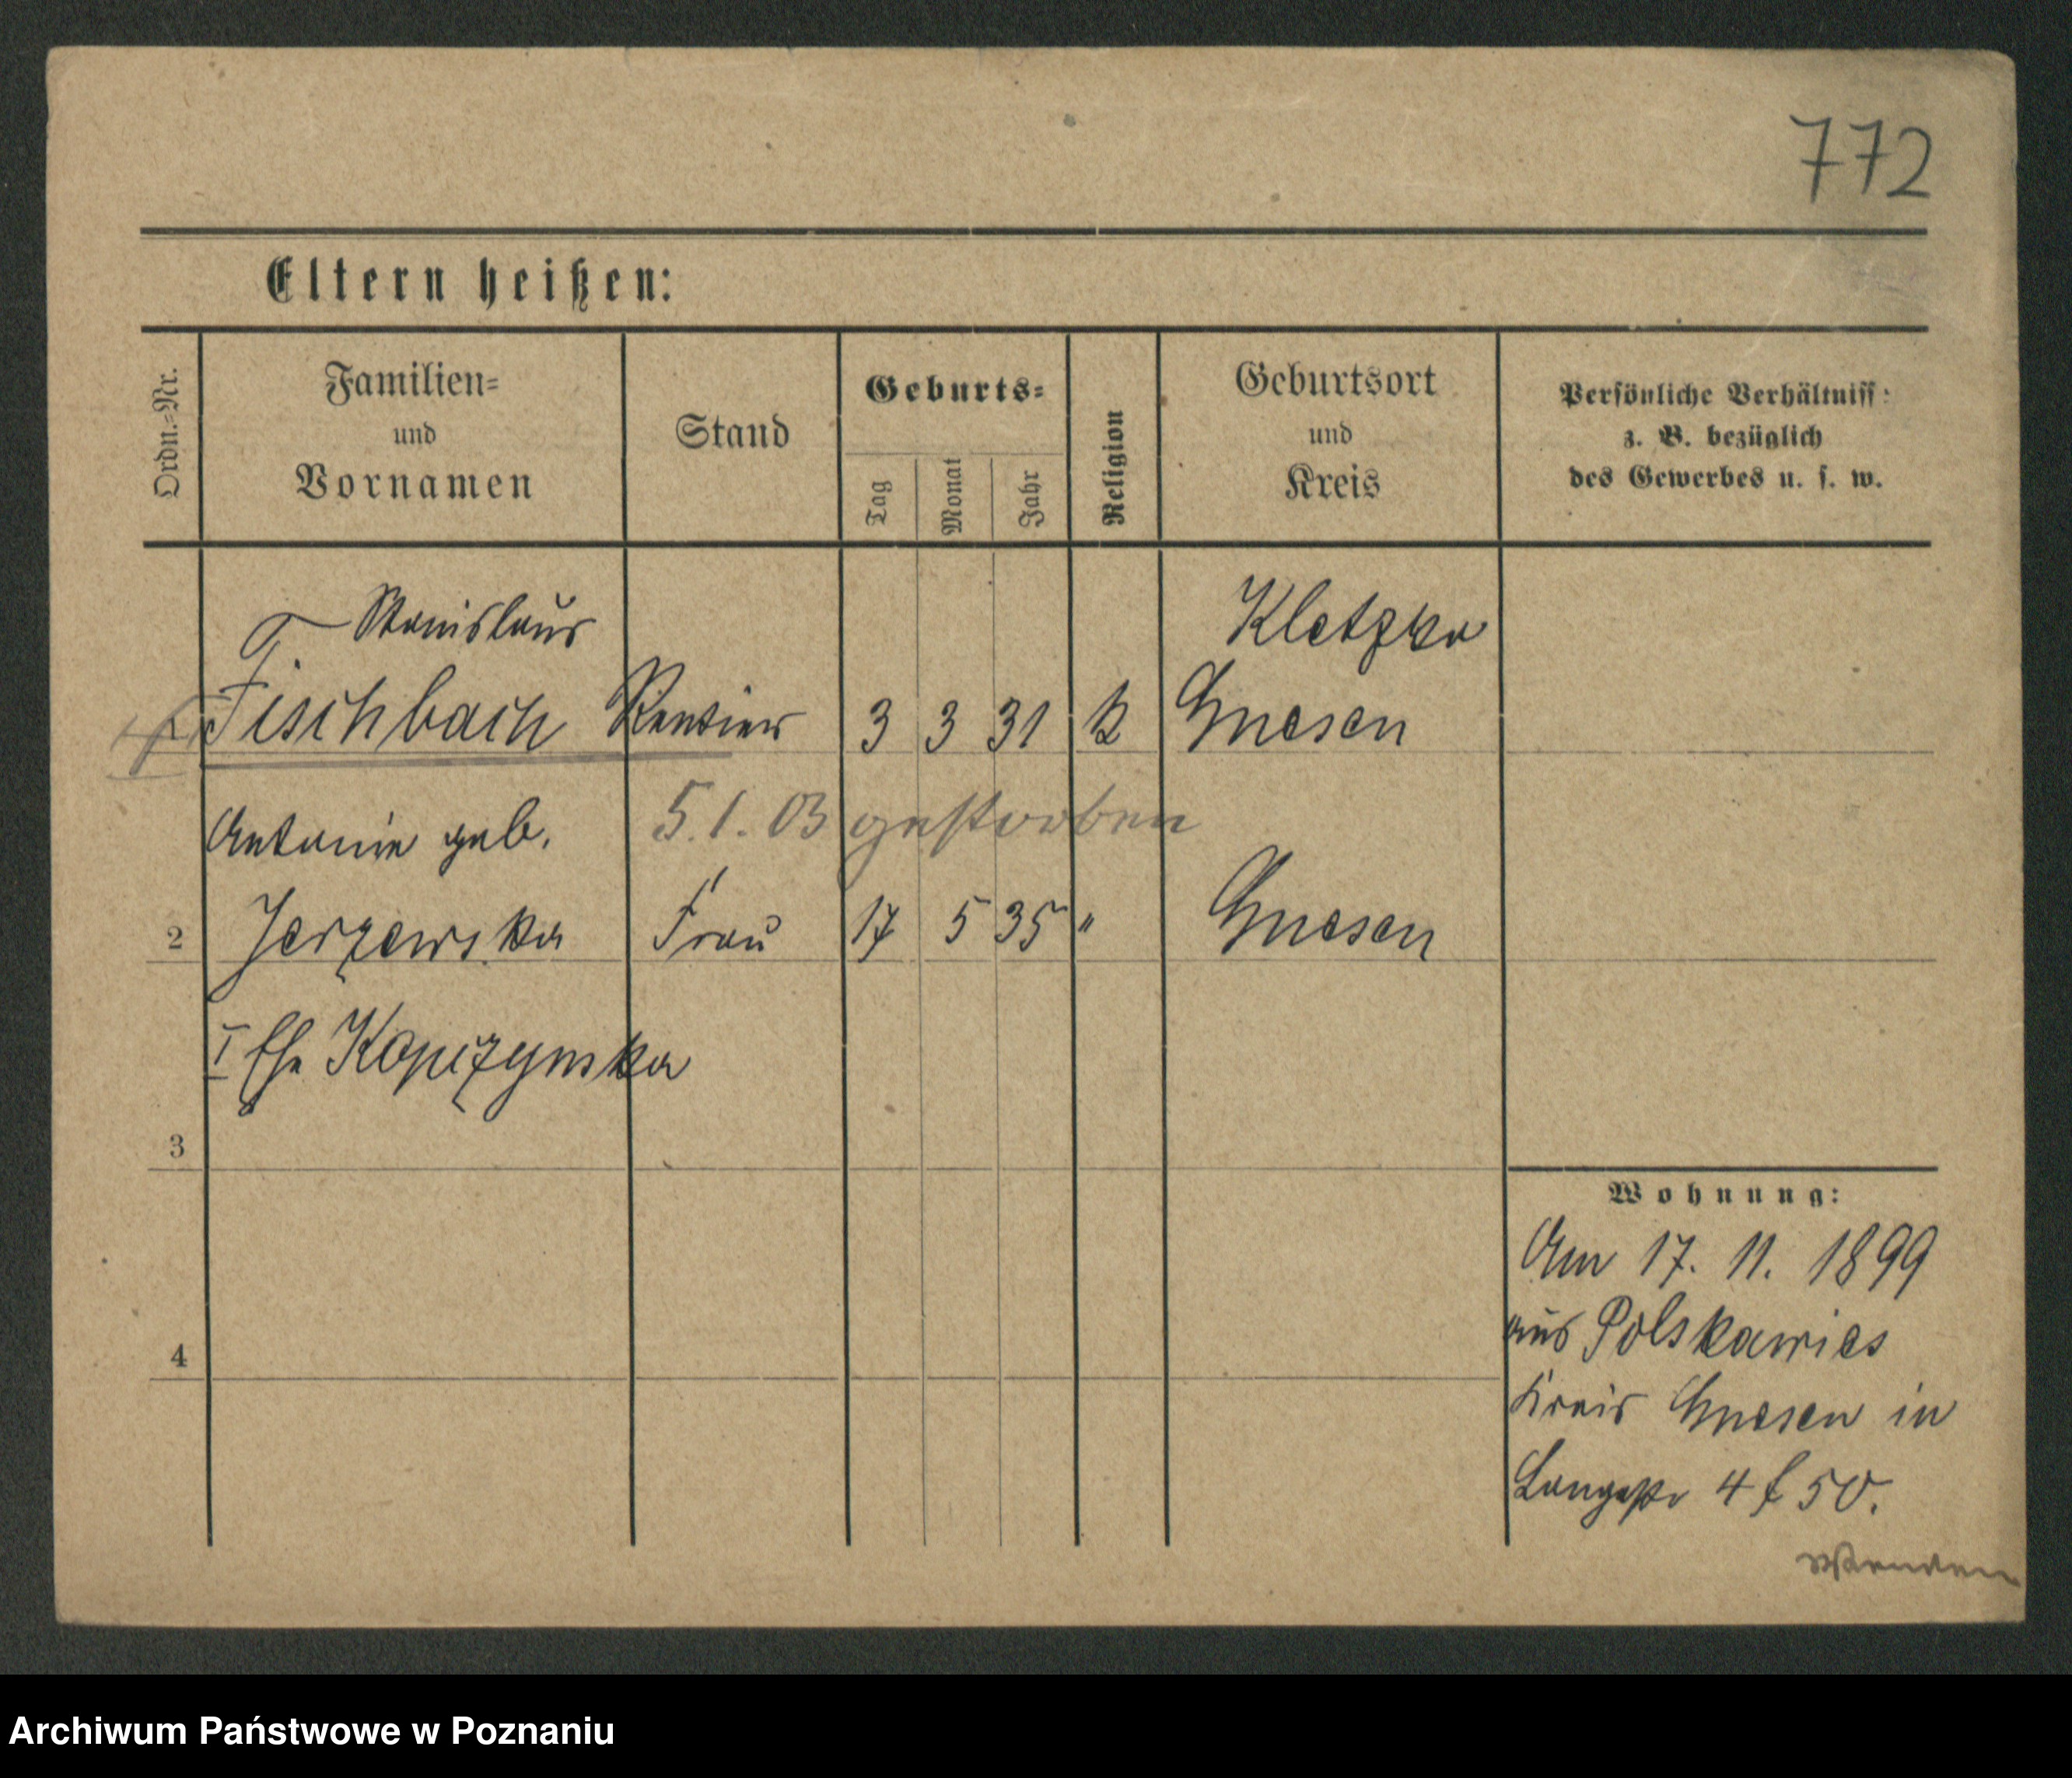 772
Eltern heißen:
Ordn.-Nr.
Familien-
und
Vornamen
Stand
Geburts-
Tag
Monat
Jahr
Religion
Geburtsort
und
Kreis
Persönliche Verhältniss:
z. B. bezüglich
des Gewerbes u. s. w.
Stanislaus
Kletzko
Fischbach Rentier 3 3 31 k Gnesen
Antonie geb. 5.1.03 gestorben
2 Jerzewska Frau 17 5 35 " Gnesen
I Ehe Kopczynska
3
4
Wohnung:
Am 17. 11. 1899
aus Polskawies
Kreis Gnesen in
Langestr 4 f 50.
Wenden
Archiwum Państwowe w Poznaniu